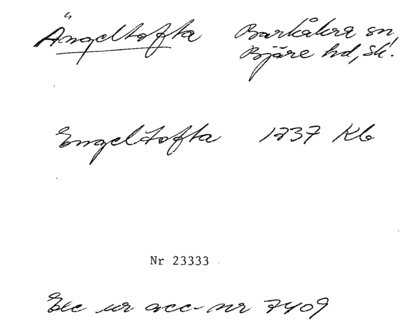 Ängeltofta Barkåkra sn,
Bjäre hd, Sk.
Engeltofta 1237 Kb
Nr 23333
Exc ur acc-nr 7409